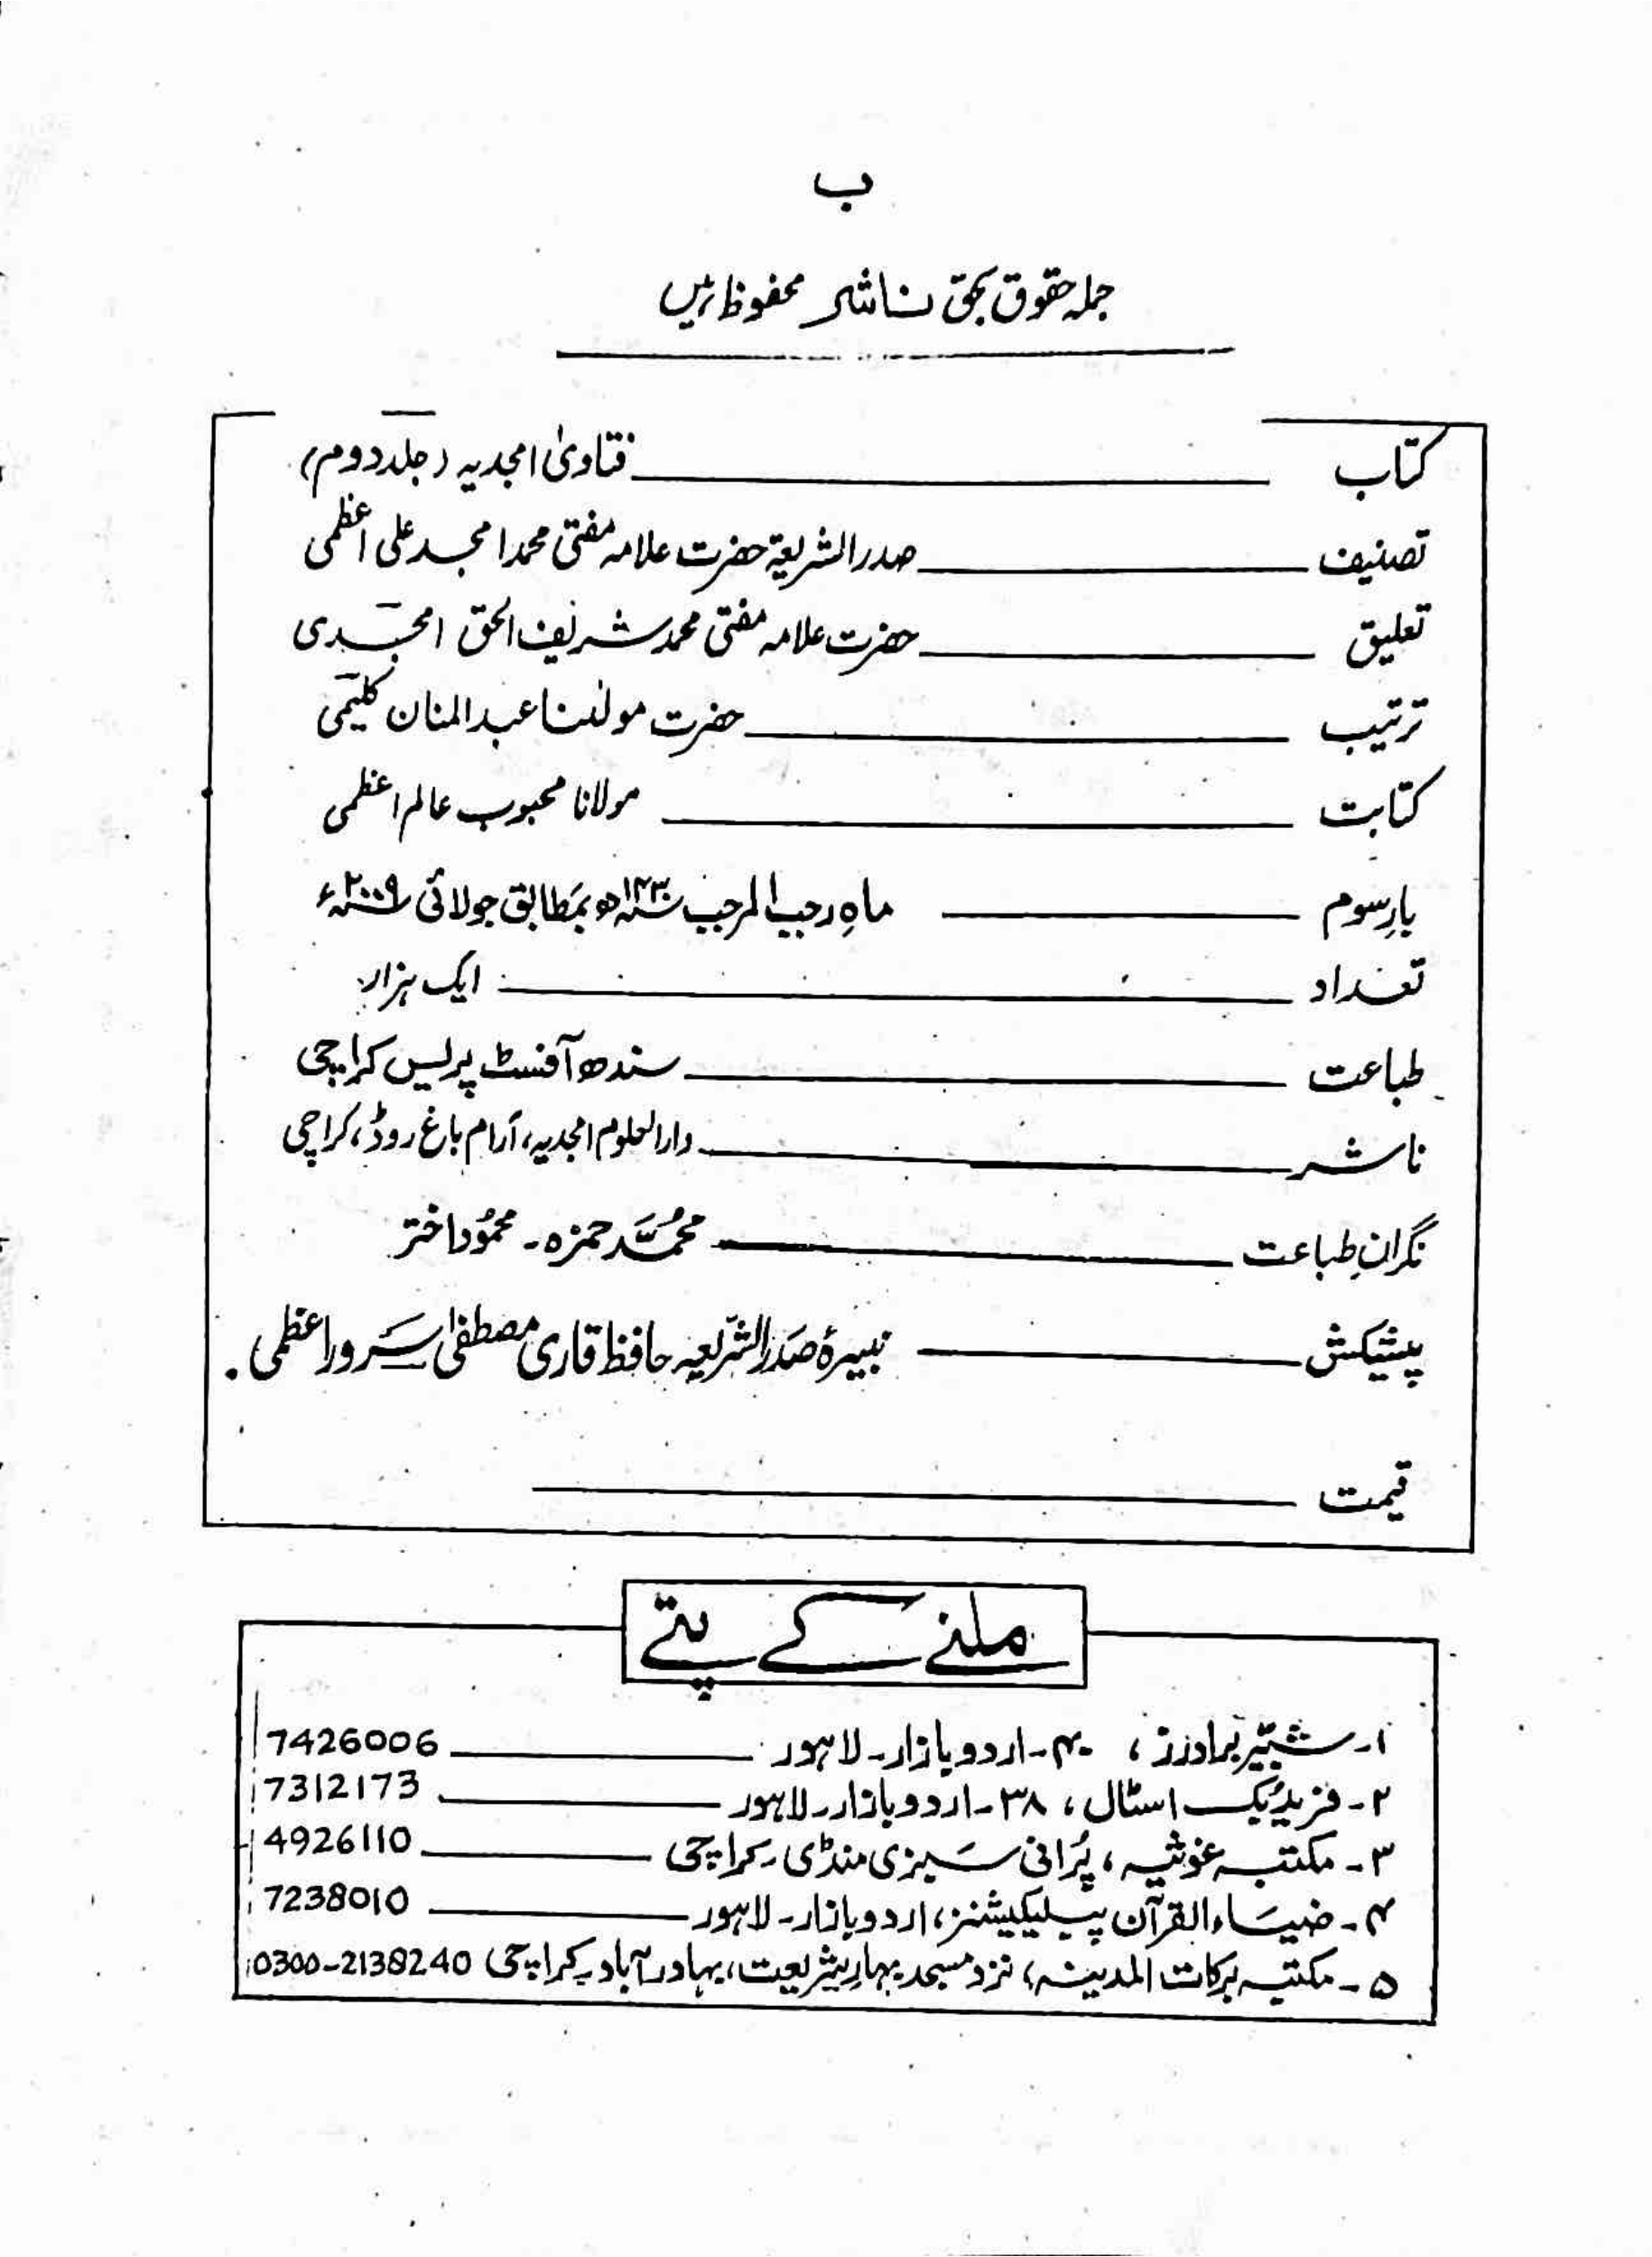 ب
جملہ حقوق بحق ناشر محفوظ ہیں
کتاب ـــــــ فتاویٰ امجدیہ (جلد دوم)
تصنیف ـــــــ صدر الشریعۃ حضرت علامہ مفتی محمد امجد علی اعظمی
تعلیق ـــــــ حضرت علامہ مفتی محمد شریف الحق امجدی
ترتیب ـــــــ حضرت مولٰنا عبد المنان کلیمی
کتابت ـــــــ مولانا محبوب عالم اعظمی
بارِ سوم ـــــــ ماہِ رجب المرجب سنہ ۱۴۳۰ھ بمطابق جولائی سنہ ۲۰۰۹ء
تعداد ـــــــ ایک ہزار
طباعت ـــــــ سندھ آفسٹ پریس کراچی
ناشر ـــــــ دار العلوم امجدیہ، آرام باغ روڈ، کراچی
نگرانِ طباعت ـــــــ محمّد حمزہ ۔ محمُود اختر
پیشکش ـــــــ نبیرۂ صدر الشّریعہ حافظ قاری مصطفٰی سرور اعظمی
قیمت ـــــــ
ملنے کے پتے
۱۔ شبّیر برادرز، ۴۰۔ اردو بازار۔ لاہور ـــــــ 7426006
۲۔ فرید بُک اسٹال، ۳۸۔ اردو بازار۔ لاہور ـــــــ 7312173
۳۔ مکتبہ غوثیہ، پُرانی سبزی منڈی۔ کراچی ـــــــ 4926110
۴۔ ضیاء القرآن پبلیکیشنز، اردو بازار۔ لاہور ـــــــ 7238010
۵۔ مکتبہ برکات المدینہ، نزد مسجد بہارِ شریعت، بہادر آباد۔ کراچی 0300-2138240